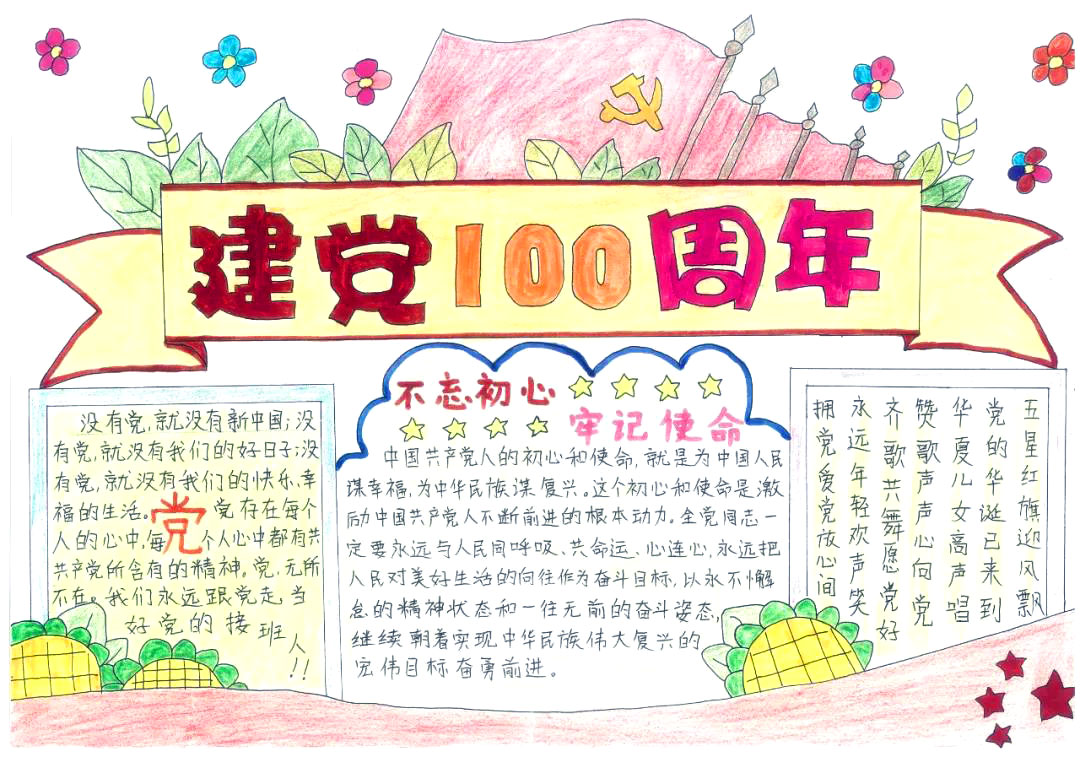 建党100周年
没有党,就没有新中国;没
有党,就没有我们的好日子;没
有党,就没有我们的快乐、幸
福的生活。党 党存在每个
人的心中,每个人心中都有共
共产党所含有的精神。党,无所
不在。我们永远跟党走,当
好党的接班人!!
不忘初心
牢记使命
中国共产党人的初心和使命,就是为中国人民
谋幸福,为中华民族谋复兴。这个初心和使命是激
励中国共产党人不断前进的根本动力。全党同志一
定要永远与人民同呼吸、共命运、心连心,永远把
人民对美好生活的向往作为奋斗目标,以永不懈
怠的精神状态和一往无前的奋斗姿态,
继续朝着实现中华民族伟大复兴的
宏伟目标奋勇前进。
五星红旗迎风飘
党的华诞已来到
华夏儿女高声唱
赞歌声声心向党
齐歌共舞愿党好
永远年轻欢声笑
拥党爱党放心间